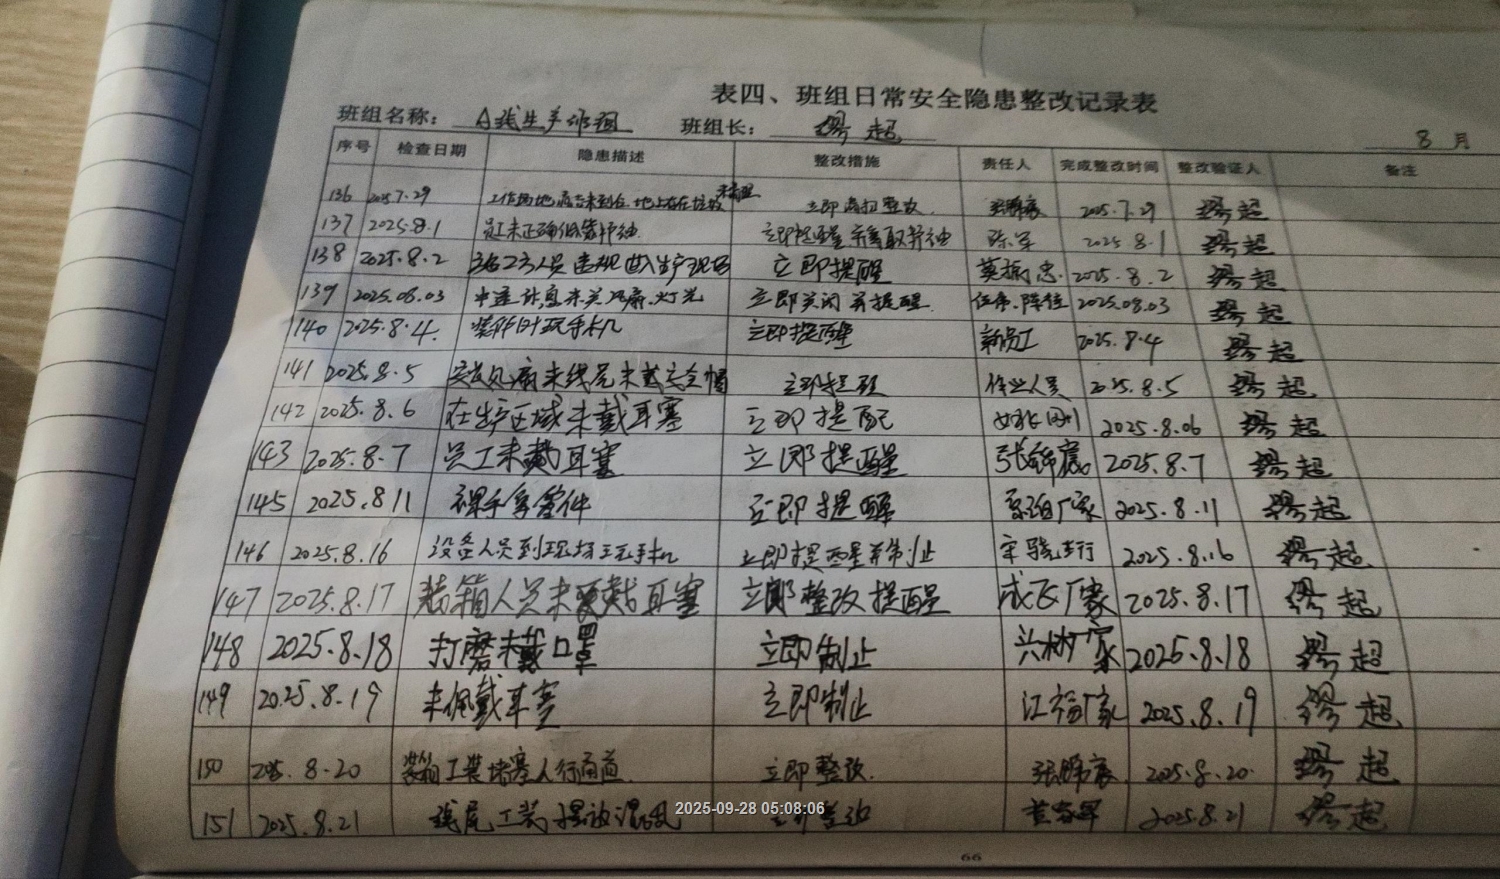 表四、班组日常安全隐患整改记录表
班组名称： A线生产班组 班组长： 缪超 8 月
序号 检查日期 隐患描述 整改措施 责任人 完成整改时间 整改验证人 备注
136 2025.7.29 工作场地 未到位 地上存在垃圾未清理 立即清扫整改. 2025.7.29 缪超
137 2025.8.1 员工未正确佩戴 立即提醒并 2025.8.1 缪超
138 2025.8.2 人员违规进入生产现场 立即提醒 2025.8.2 缪超
139 2025.08.03 中途休息未关风扇.灯光 立即关闭并提醒. 2025.08.03 缪超
140 2025.8.4. 时玩手机 立即提醒 新员工 2025.8.4 缪超
141 2025.8.5 安装风扇 未戴安全帽 立即提醒 作业人员 2025.8.5 缪超
142 2025.8.6 在生产区域未戴耳塞 立即提配 2025.8.06 缪超
143 2025.8.7 员工未戴耳塞 立即提醒 2025.8.7 缪超
145 2025.8 11 裸手拿零件 立即提醒 厂家 2025.8.11 缪超
146 2025.8.16 设备人员到现场玩手机 立即提醒并制止 2025.8.16 缪超
147 2025.8.17 装箱人员未戴耳塞 立即整改提醒 成飞厂家 2025.8.17 缪超
148 2025.8.18 打磨未戴口罩 立即制止 厂家 2025.8.18 缪超
149 2025.8.19 未佩戴耳塞 立即制止 江福厂家 2025.8.19 缪超
150 2025.8-20 装箱工装堵塞人行通道. 立即整改. 2025.8.20. 缪超
151 2025.8.21 线尾工装摆放混乱 立即整改 2025.8.21 缪超
2025-09-28 05:08:06
66